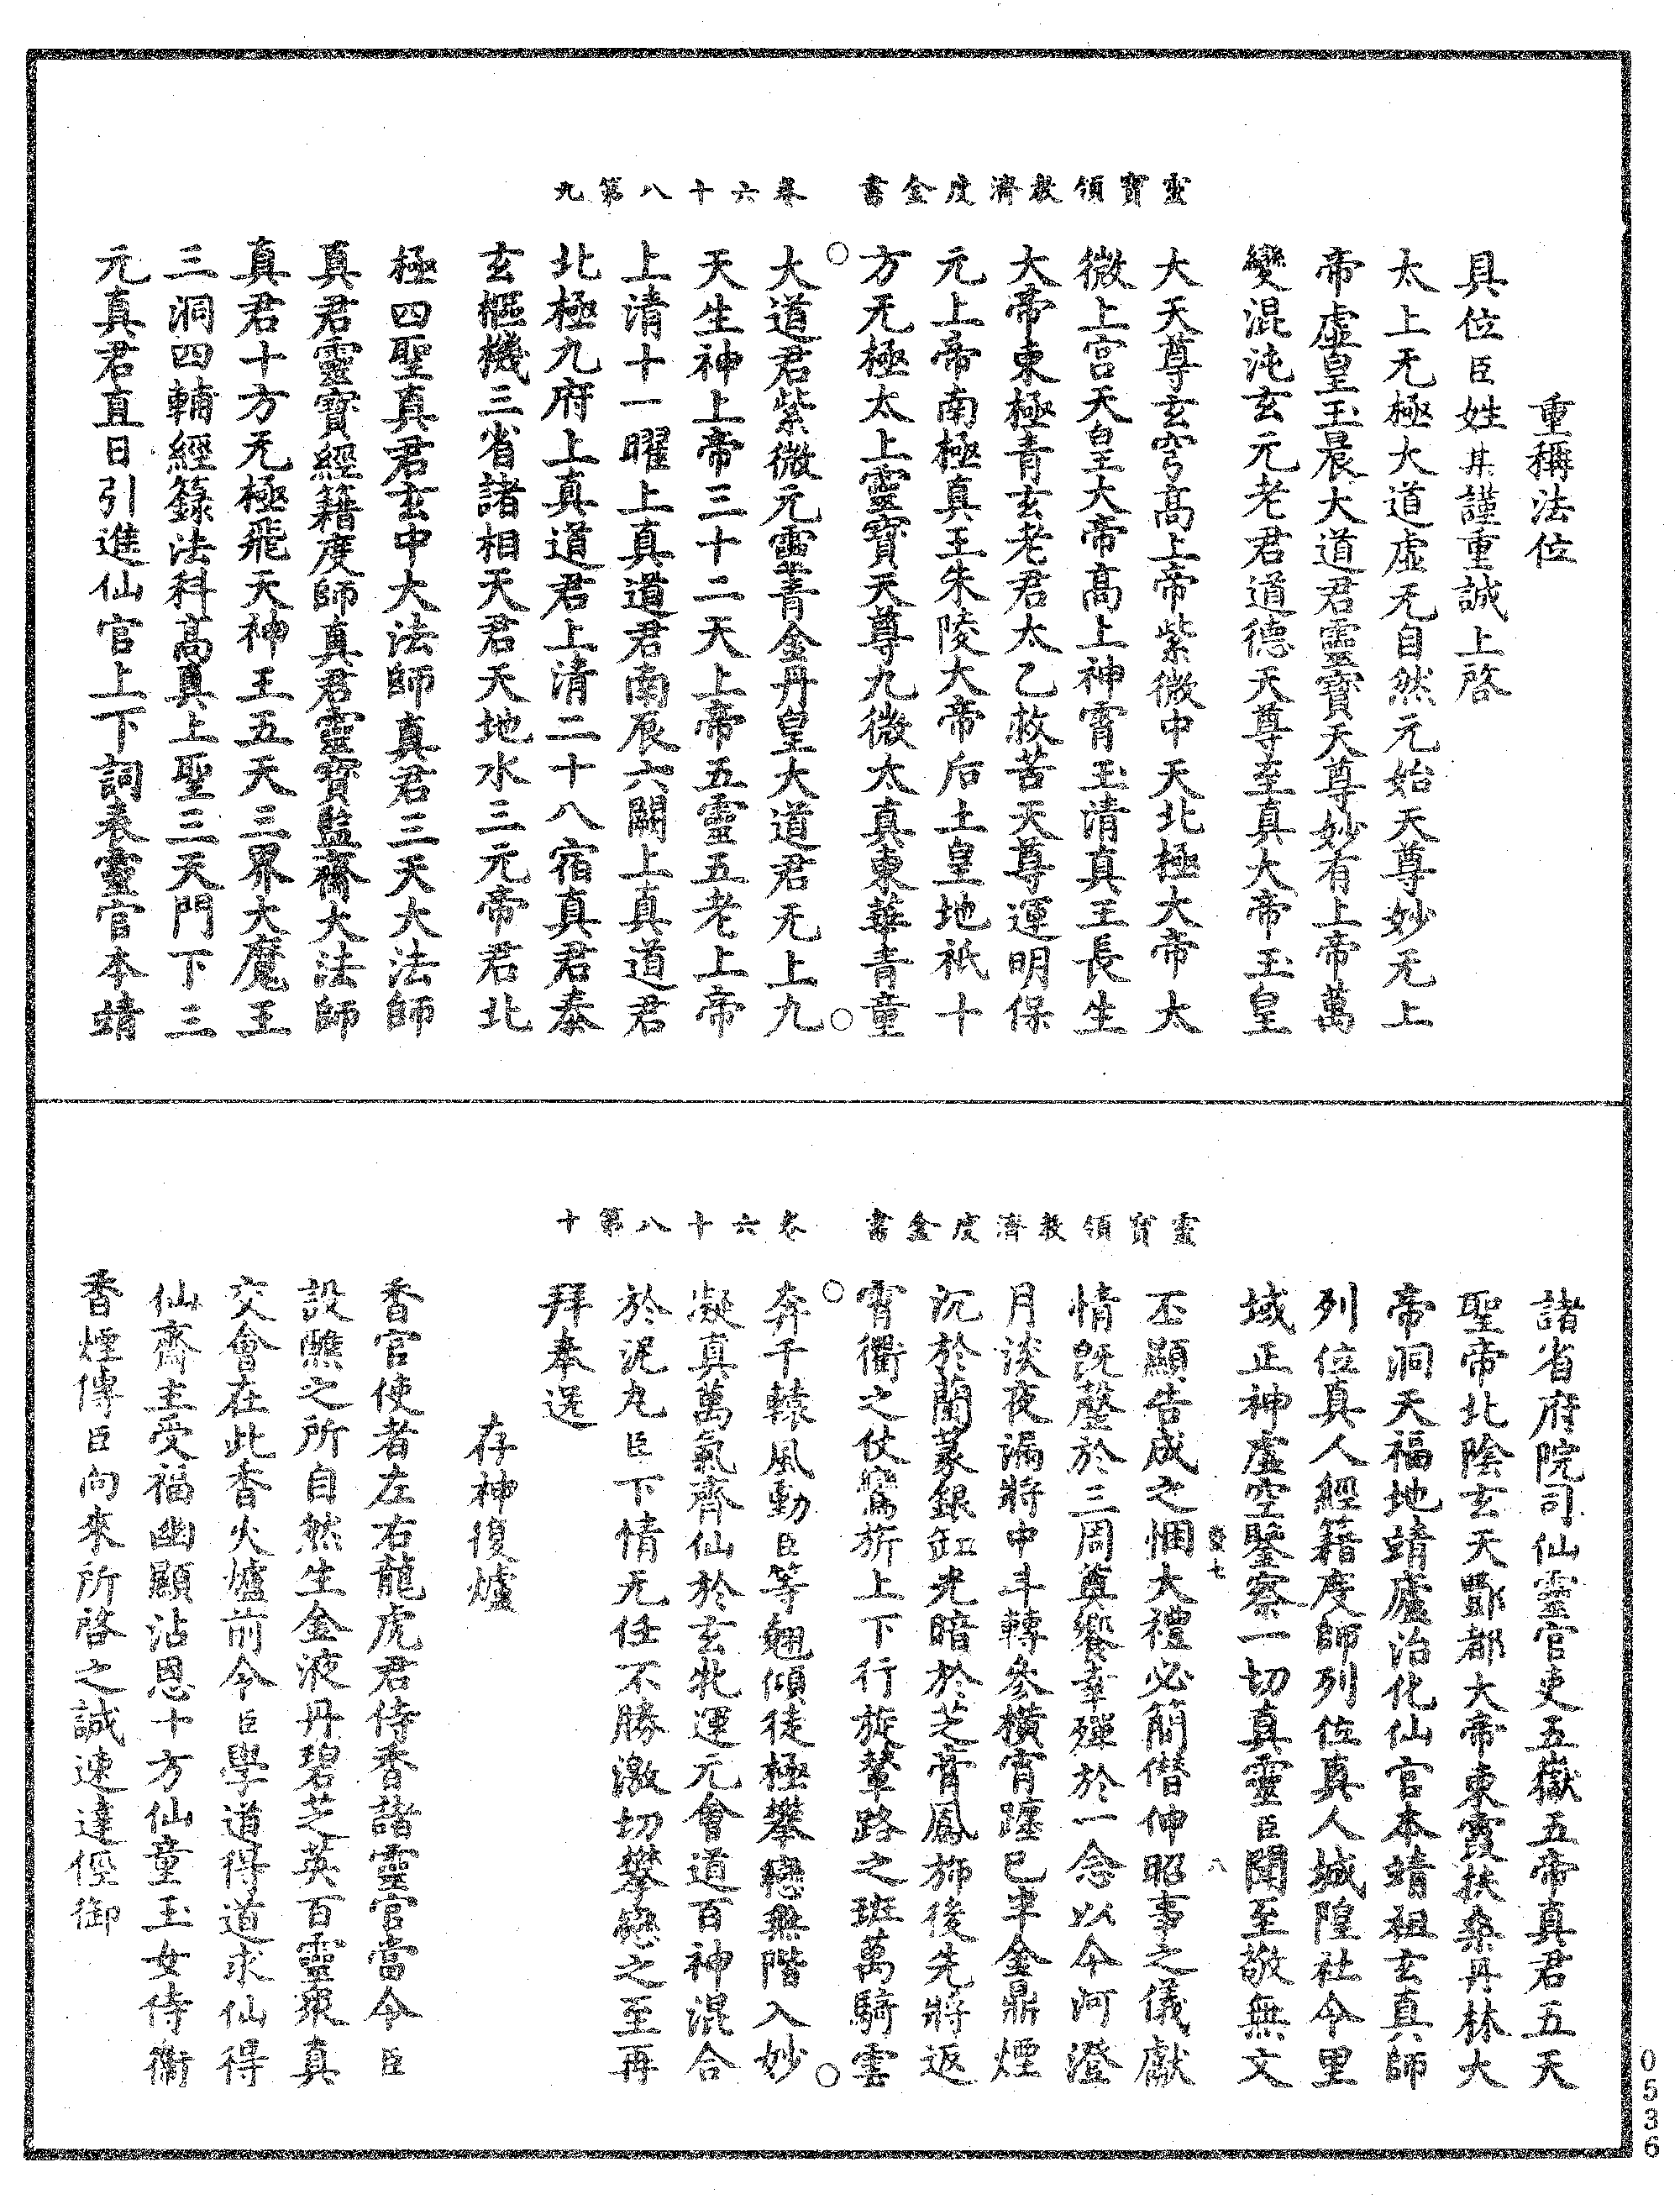 靈寶領教濟度金書　卷六十八第九
重稱法位
具位臣姓某謹重誠上啓
太上无極大道虛无自然元始天尊妙无上
帝虛皇玉晨大道君靈寶天尊妙有上帝萬
變混沌玄元老君道德天尊至真大帝玉皇
大天尊玄穹高上帝紫微中天北極大帝太
微上宫天皇大帝高上神霄玉清真王長生
大帝東極青玄老君太乙救苦天尊運明保
元上帝南極真王朱陵大帝后土皇地祇十
方无極太上靈寶天尊九微太真東華青童
大道君紫微元靈青金丹皇大道君无上九
天生神上帝三十二天上帝五靈五老上帝
上清十一曜上真道君南辰六闕上真道君
北極九府上真道君上清二十八宿真君泰
玄樞機三省諸相天君天地水三元帝君北
極四聖真君玄中大法師真君三天大法師
真君靈寶經籍度師真君靈寶監齋大法師
真君十方无極飛天神王五天三界大魔王
三洞四輔經籙法科高真上聖三天門下三
元真君直日引進仙官上下詞表靈官本靖
靈寶領教濟度金書　卷六十八第十
諸省府院司仙靈官吏五嶽五帝真君五天
聖帝北陰玄天酆都大帝東霞扶桑丹林大
帝洞天福地靖廬治化仙官本靖祖玄真師
列位真人經籍度師列位真人城隍社令里
域正神虛空鑒察一切真靈臣聞至敬無文
丕顯告成之悃大禮必簡僭伸昭事之儀獻
七
八
情既罄於三周奠饗幸殫於一念以今河澄
月淡夜漏將中斗轉參橫宵躔已半金鼎煙
沉於蘭篆銀缸光暗於芝膏鳳斾後先將返
霄衢之仗鸞旂上下行旋輦路之班萬騎雲
奔千轅風動臣等翹傾徒極攀戀無階入妙
凝真萬氣齊仙於玄牝運元會道百神混合
於泥丸臣下情无任不勝激切攀戀之至再
拜奉送
存神復爐
香官使者左右龍虎君侍香諸靈官當令臣
設醮之所自然生金液丹碧芝英百靈衆真
交會在此香火爐前令臣學道得道求仙得
仙齋主受福幽顯沾恩十方仙童玉女侍衛
香煙傳臣向來所啓之誠速達徑御
0536